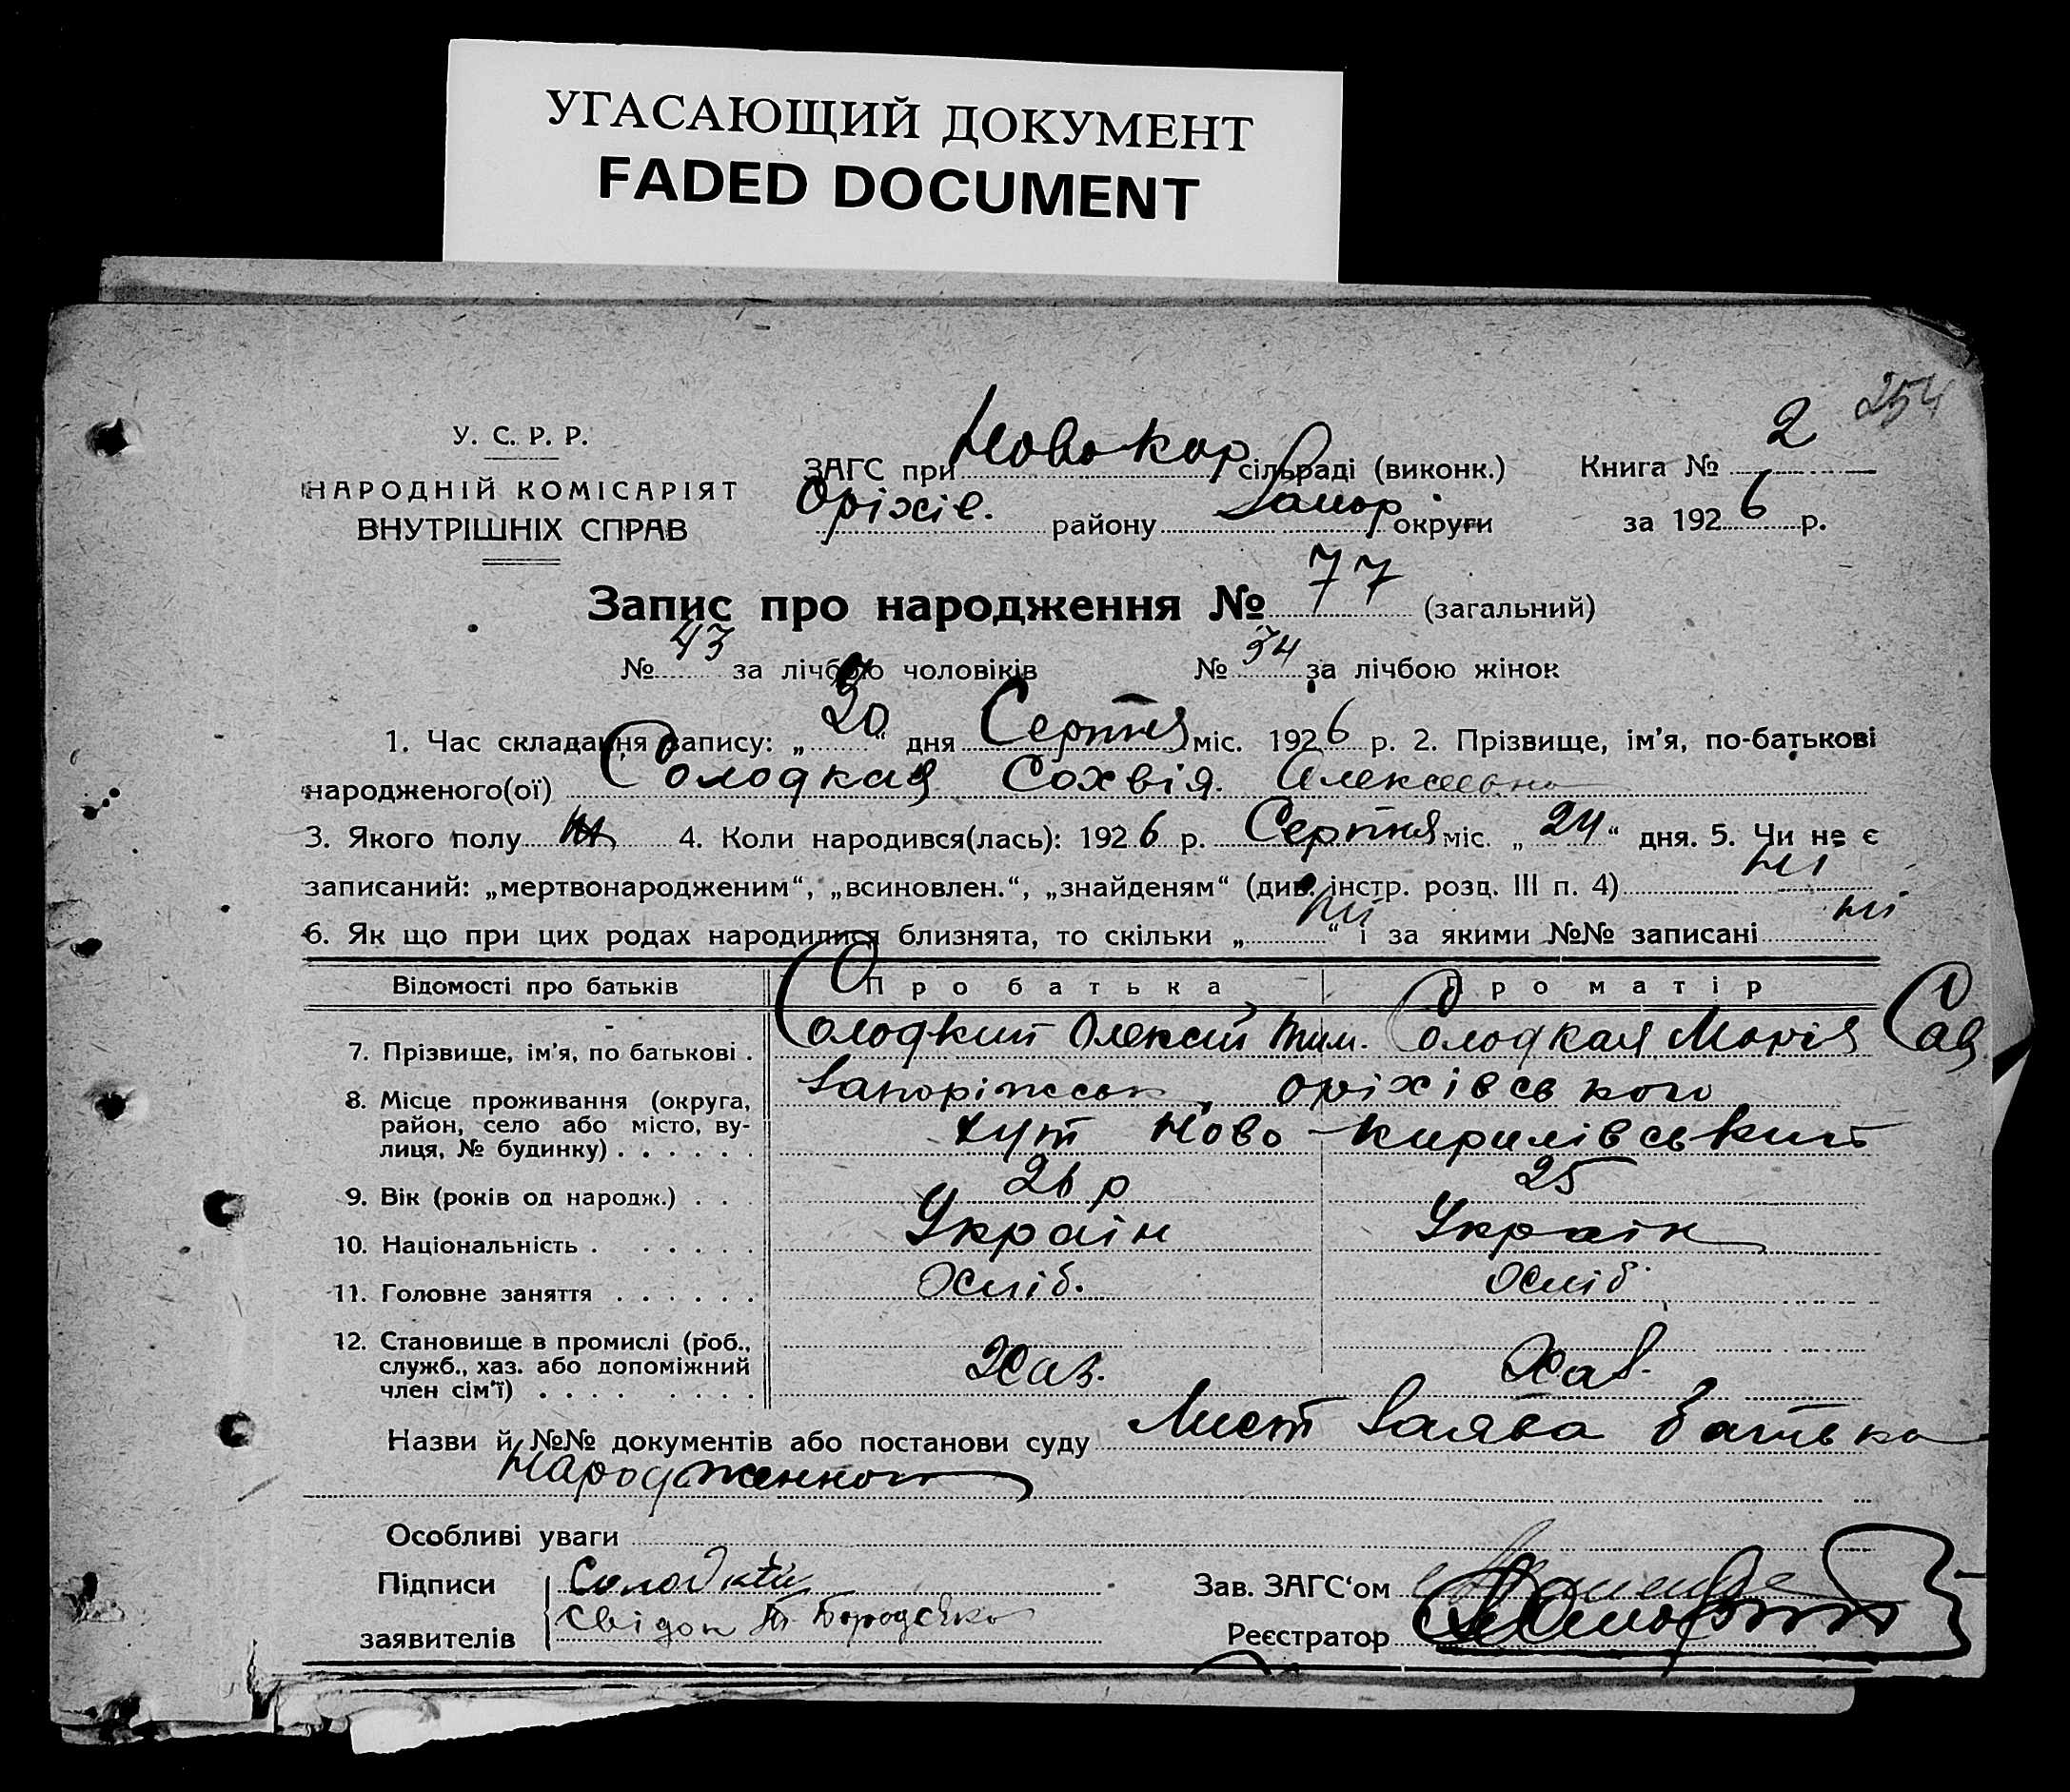 УГАСАЮЩИЙ ДОКУМЕНТ
FADED DOCUMENT
254
У. С. Р. Р.
НАРОДНІЙ КОМІСАРІЯТ
ВНУТРІШНІХ СПРАВ
ЗАГС при Новокир сільраді (виконк.) Книга № 2
Оріхів. району Запор округи за 1926 р.
Запис про народження № 77 (загальний)
№ 43 за лічбою чоловіків № 34 за лічбою жінок
1. Час складання запису: „ “ дня Серпня міс. 1926 р. 2. Прізвище, ім'я, по-батькові
народженого(ої) Солодкая Сохвія. Алексеевна
3. Якого полу 4. Коли народився(лась): 1926 р. Серпня міс. „24“ дня. 5. Чи не є
записаний: „мертвонародженим“, „всиновлен.“, „знайденям“ (див. інстр. розд. III п. 4) ні
6. Як що при цих родах народилися близнята, то скільки „ні“ і за якими №№ записані ні
Відомості про батьків Про батька Про матір
7. Прізвище, ім'я, по батькові . Солодкий Олексій Тим. Солодкая Марія Сав
8. Місце проживання (округа, район, село або місто, вулиця, № будинку) . . . . . . Запоріжськ, Оріхівського
хут Ново-Кирилівський
9. Вік (років од народж.) . . . 26 р 25
10. Національність . . . . . . Україн Україн
11. Головне заняття . . . . . . Хліб. Хліб
12. Становище в промислі (роб., служб., хаз. або допоміжний член сім'ї) . . . . . . . Хаз. Хаз.
Назви й №№ документів або постанови суду Лист Заява батька
Народженної
Особливі уваги
Підписи Солодкий Зав. ЗАГС'ом
заявителів Свідок Бородєнко Реєстратор